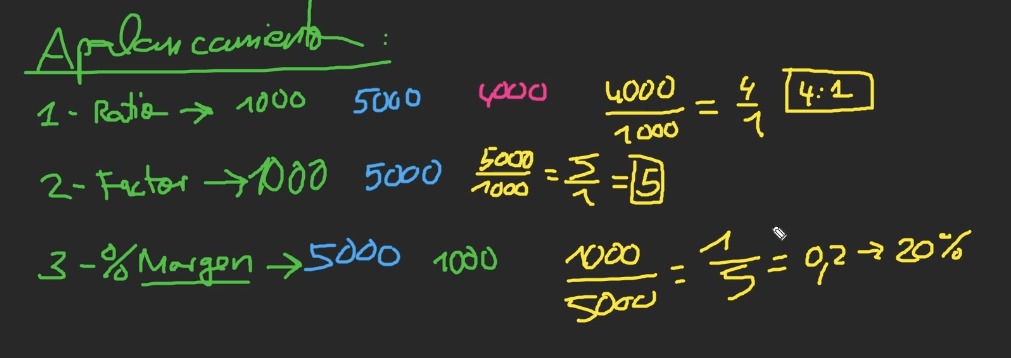 Apalancamiento :
1- Ratio → 1000 5000 4000 4000/1000 = 4/1 4:1
2- Factor → 1000 5000 5000/1000 = 5/1 = 5
3-% Margen → 5000 1000 1000/5000 = 1/5 = 0,2 → 20%